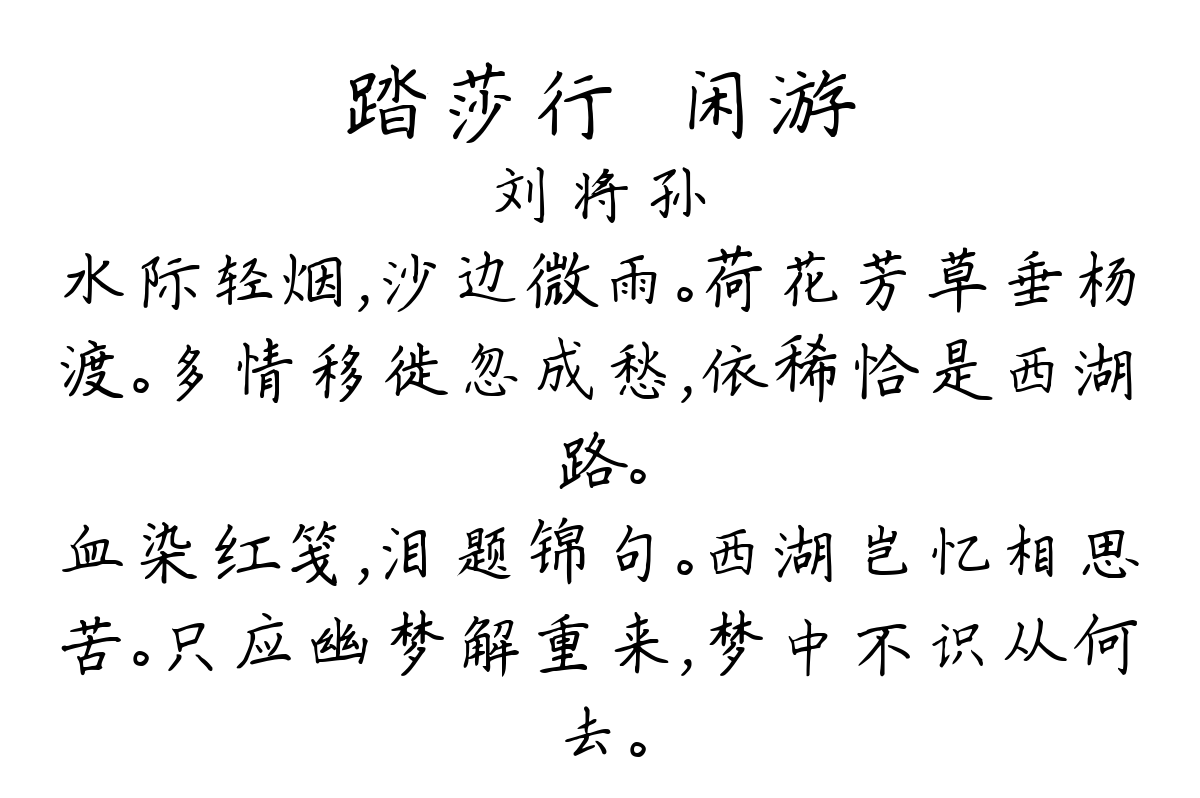 踏莎行 闲游
刘将孙
水际轻烟,沙边微雨。荷花芳草垂杨
渡。多情移徙忽成愁,依稀恰是西湖
路。
血染红笺,泪题锦句。西湖岂忆相思
苦。只应幽梦解重来,梦中不识从何
去。